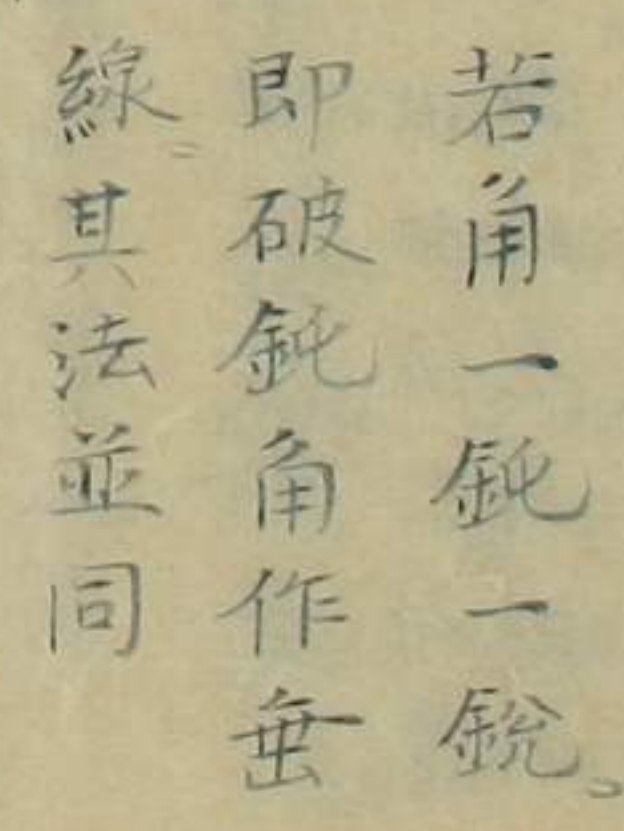 若角一鈍一銳。
即破鈍角作垂
線。其法並同